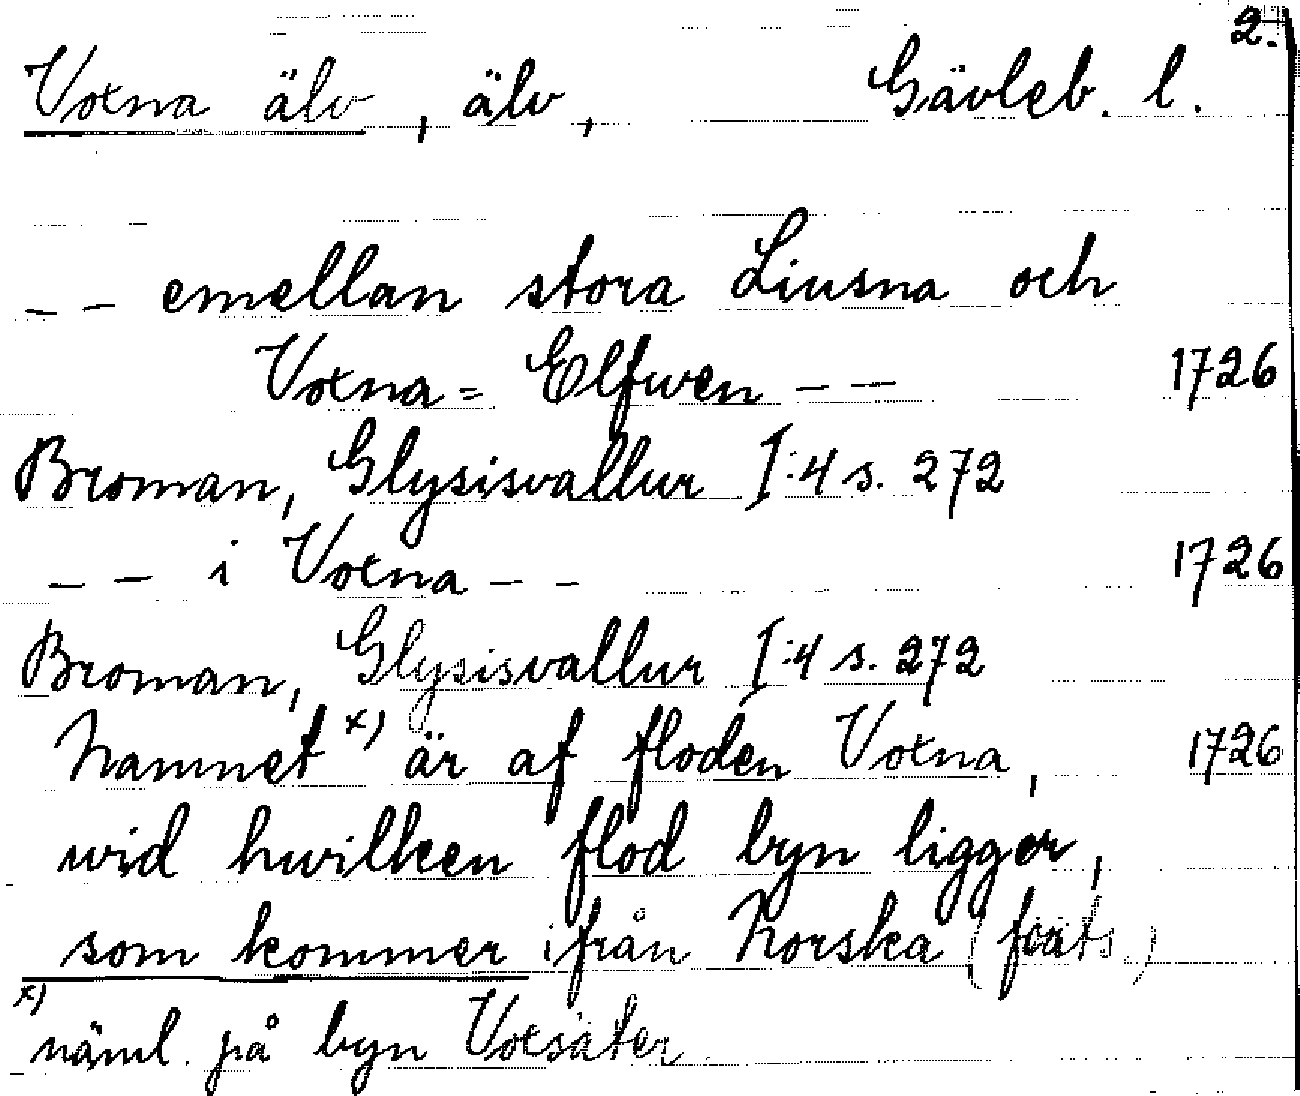 2.
Voxna älv, älv, Gävleb. l.
- - emellan stora Liusna och
Voxna = Elfwen - - 1726
Broman, Glysisvallur I:4 s. 272
- - i Voxna - - 1726
Broman, Glysisvallur I:4 s. 272
Namnet x) är af floden Voxna, 1726
wid hwilken flod byn ligger,
som kommer ifrån Norska (forts.)
x)
näml. på byn Voxsäter